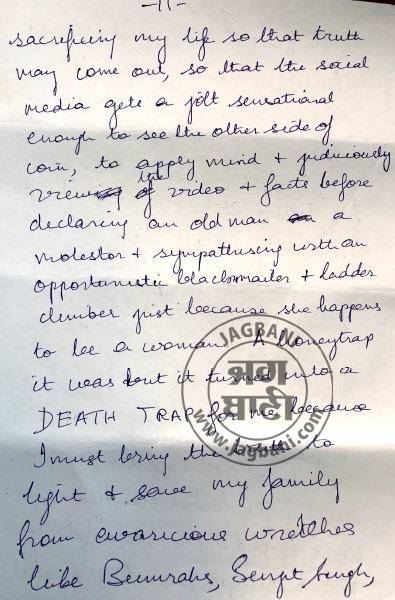 -11-
sacrificing my life so that truth
may come out, so that the social
media gets a jolt sensational
enough to see the other side of
coin, to apply mind & judiciously
view the video & facts before
declaring an old man a
molestor & sympathising with an
opportunistic blackmailer & ladder
climber just because she happens
to be a woman. A honeytrap
it was but it turned into a
DEATH TRAP for me because
I must bring the truth to
light & save my family
from avaricious wretches
like
JAGBANI
www.jagbani.com